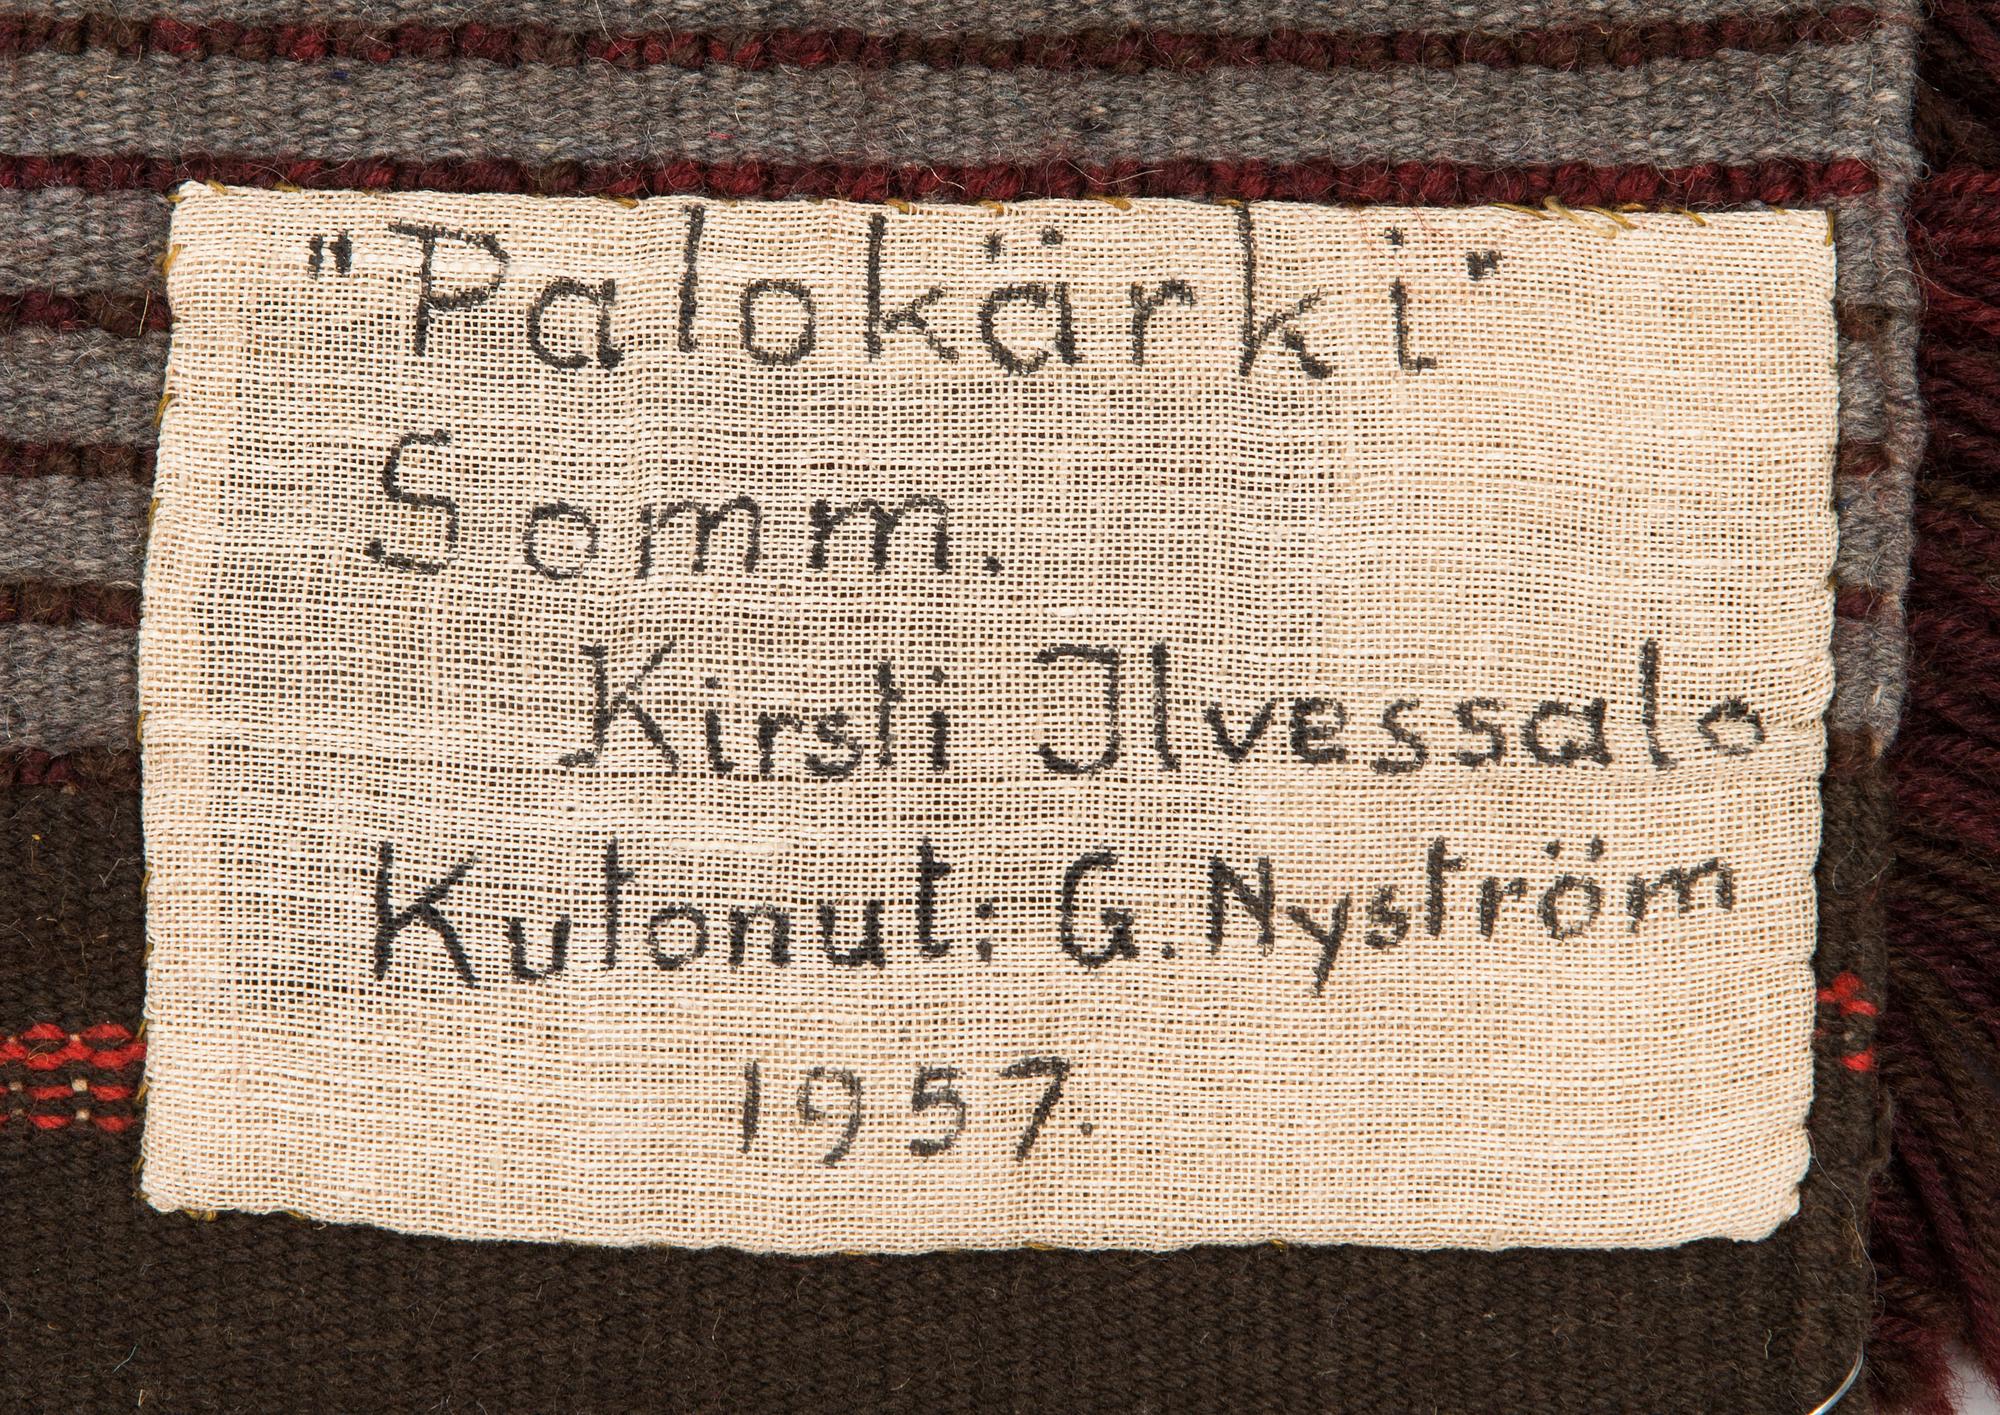 "Palokärki"
Somm.
Kirsti Ilvessalo
Kutonut: G. Nyström
1957.